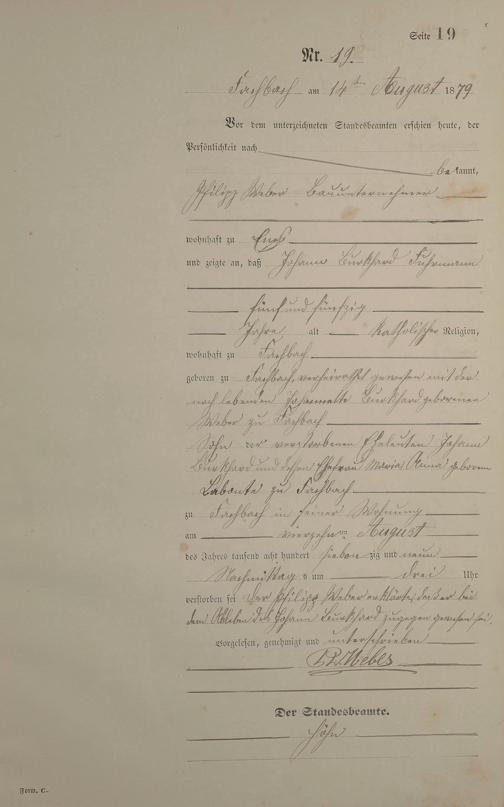 Seite 19
Nr. 19.
Fachbach am 14ten August 1879
Vor dem unterzeichneten Standesbeamten erschien heute, der
Persönlichkeit nach
bekannt,
Philipp Weber Bauunternehmer
wohnhaft zu Ems
und zeigte an, daß Johann Burkhard Fuhrmann
fünf und fünfzig
Jahre alt Katholischer Religion,
wohnhaft zu Fachbach
geboren zu Fachbach, verheirathet gewesen mit der
noch lebenden Johannette Burkhard geborenen
Weber zu Fachbach
Sohn der verstorbenen Eheleuten Johann
Burkhard und dessen Ehefrau Maria Anna geborene
Labonté zu Fachbach
zu Fachbach in seiner Wohnung
am vierzehnten August
des Jahres tausend acht hundert siebenzig und neun
Nachmittags um drei Uhr
verstorben sei der Philipp Weber erklärte, daß er bei
dem Ableben des Johann Burkhard zugegen gewesen sei.
Vorgelesen, genehmigt und unterschrieben
Weber
Der Standesbeamte.
Höhn
Form. C.